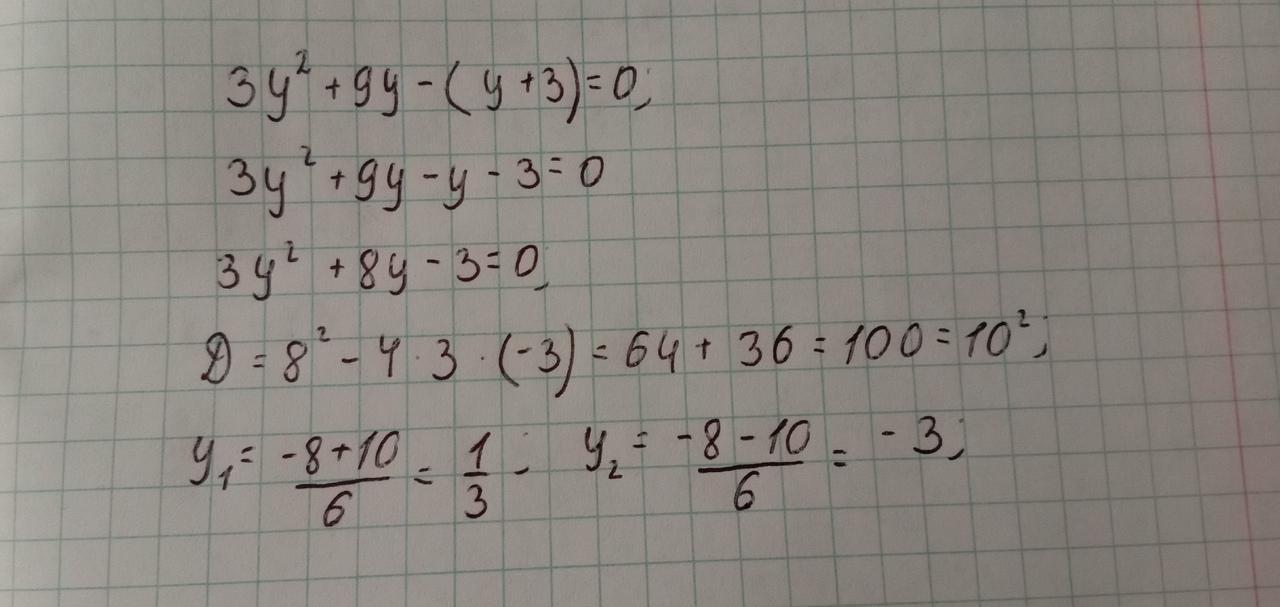 3y² + 9y - (y + 3) = 0;
3y² + 9y - y - 3 = 0
3y² + 8y - 3 = 0;
D = 8² - 4 · 3 · (-3) = 64 + 36 = 100 = 10²;
y₁ = (-8 + 10)/6 = 1/3; y₂ = (-8 - 10)/6 = -3;